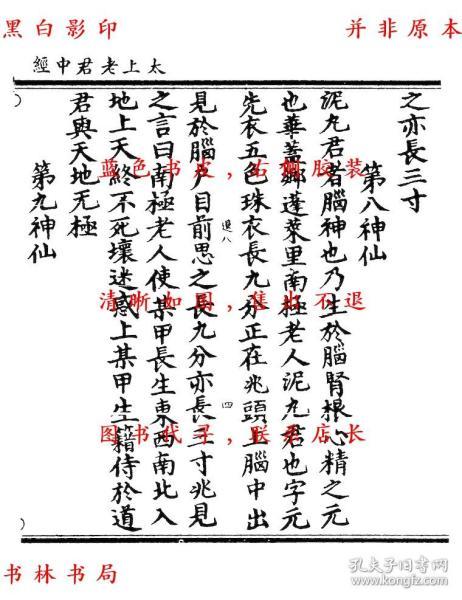 黑白影印
并非原本
太上老君中經
之亦長三寸
第八神仙
泥丸君者腦神也乃生於腦腎根心精之元
也華蓋鄉蓬萊里南極老人泥丸君也字元
先衣五色珠衣長九分正在兆頭上腦中出
見於腦戶目前思之長九分亦長三寸兆見
之言曰南極老人使某甲長生東西南北入
地上天終不死壞迷惑上某甲生籍侍於道
君與天地无極
第九神仙
退八
四
蓝色书皮，右侧胶装
清晰如图，售出不退
图书代寻，联系店长
书林书局
孔夫子旧书网